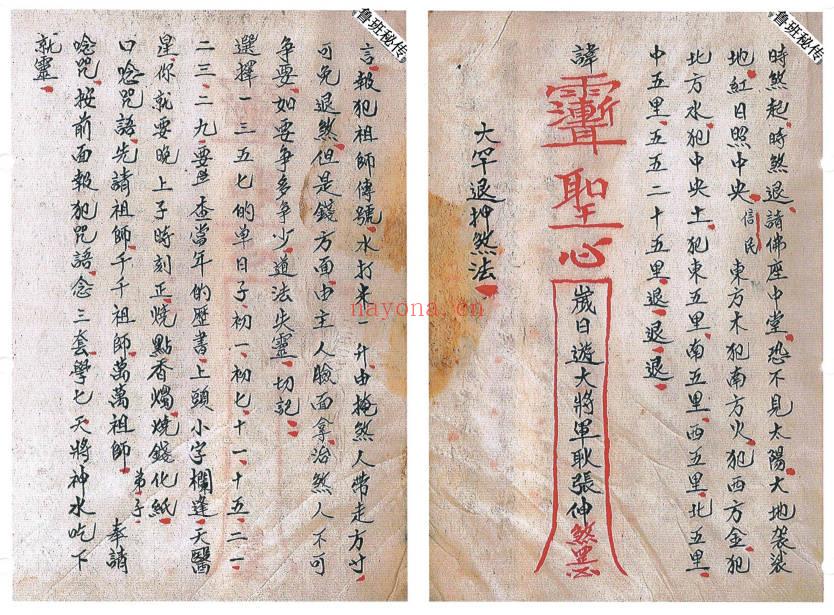 鲁班秘传
時煞起時煞退請佛座中堂恐不見太陽大地袈裟
地紅日照中央信民東方木犯南方火犯西方金犯
北方水犯中央土犯東五里南五里西五里北五里
中五里五五二十五里退退退
諱
聖心
歲日遊大將軍耿張仲煞
大罕退押煞法
鲁班秘传
言報犯祖師傳號水打米一升由掩煞人帶走方寸
可免退煞但是錢方面由主人臉面拿治煞人不可
爭要如要爭多爭少道法失靈切記
選擇一三五七的单日子初一初七十一十五二一
二三二九要查當年的歷書上頭小字欄逢天醫
星你就要晚上子時刻正燒點香燭燒錢化紙
口唸咒語先請祖師千千祖師萬萬祖師弟子奉請
唸咒按前面報犯咒語念三套學七天將神水吃下
就靈
nayona.cn